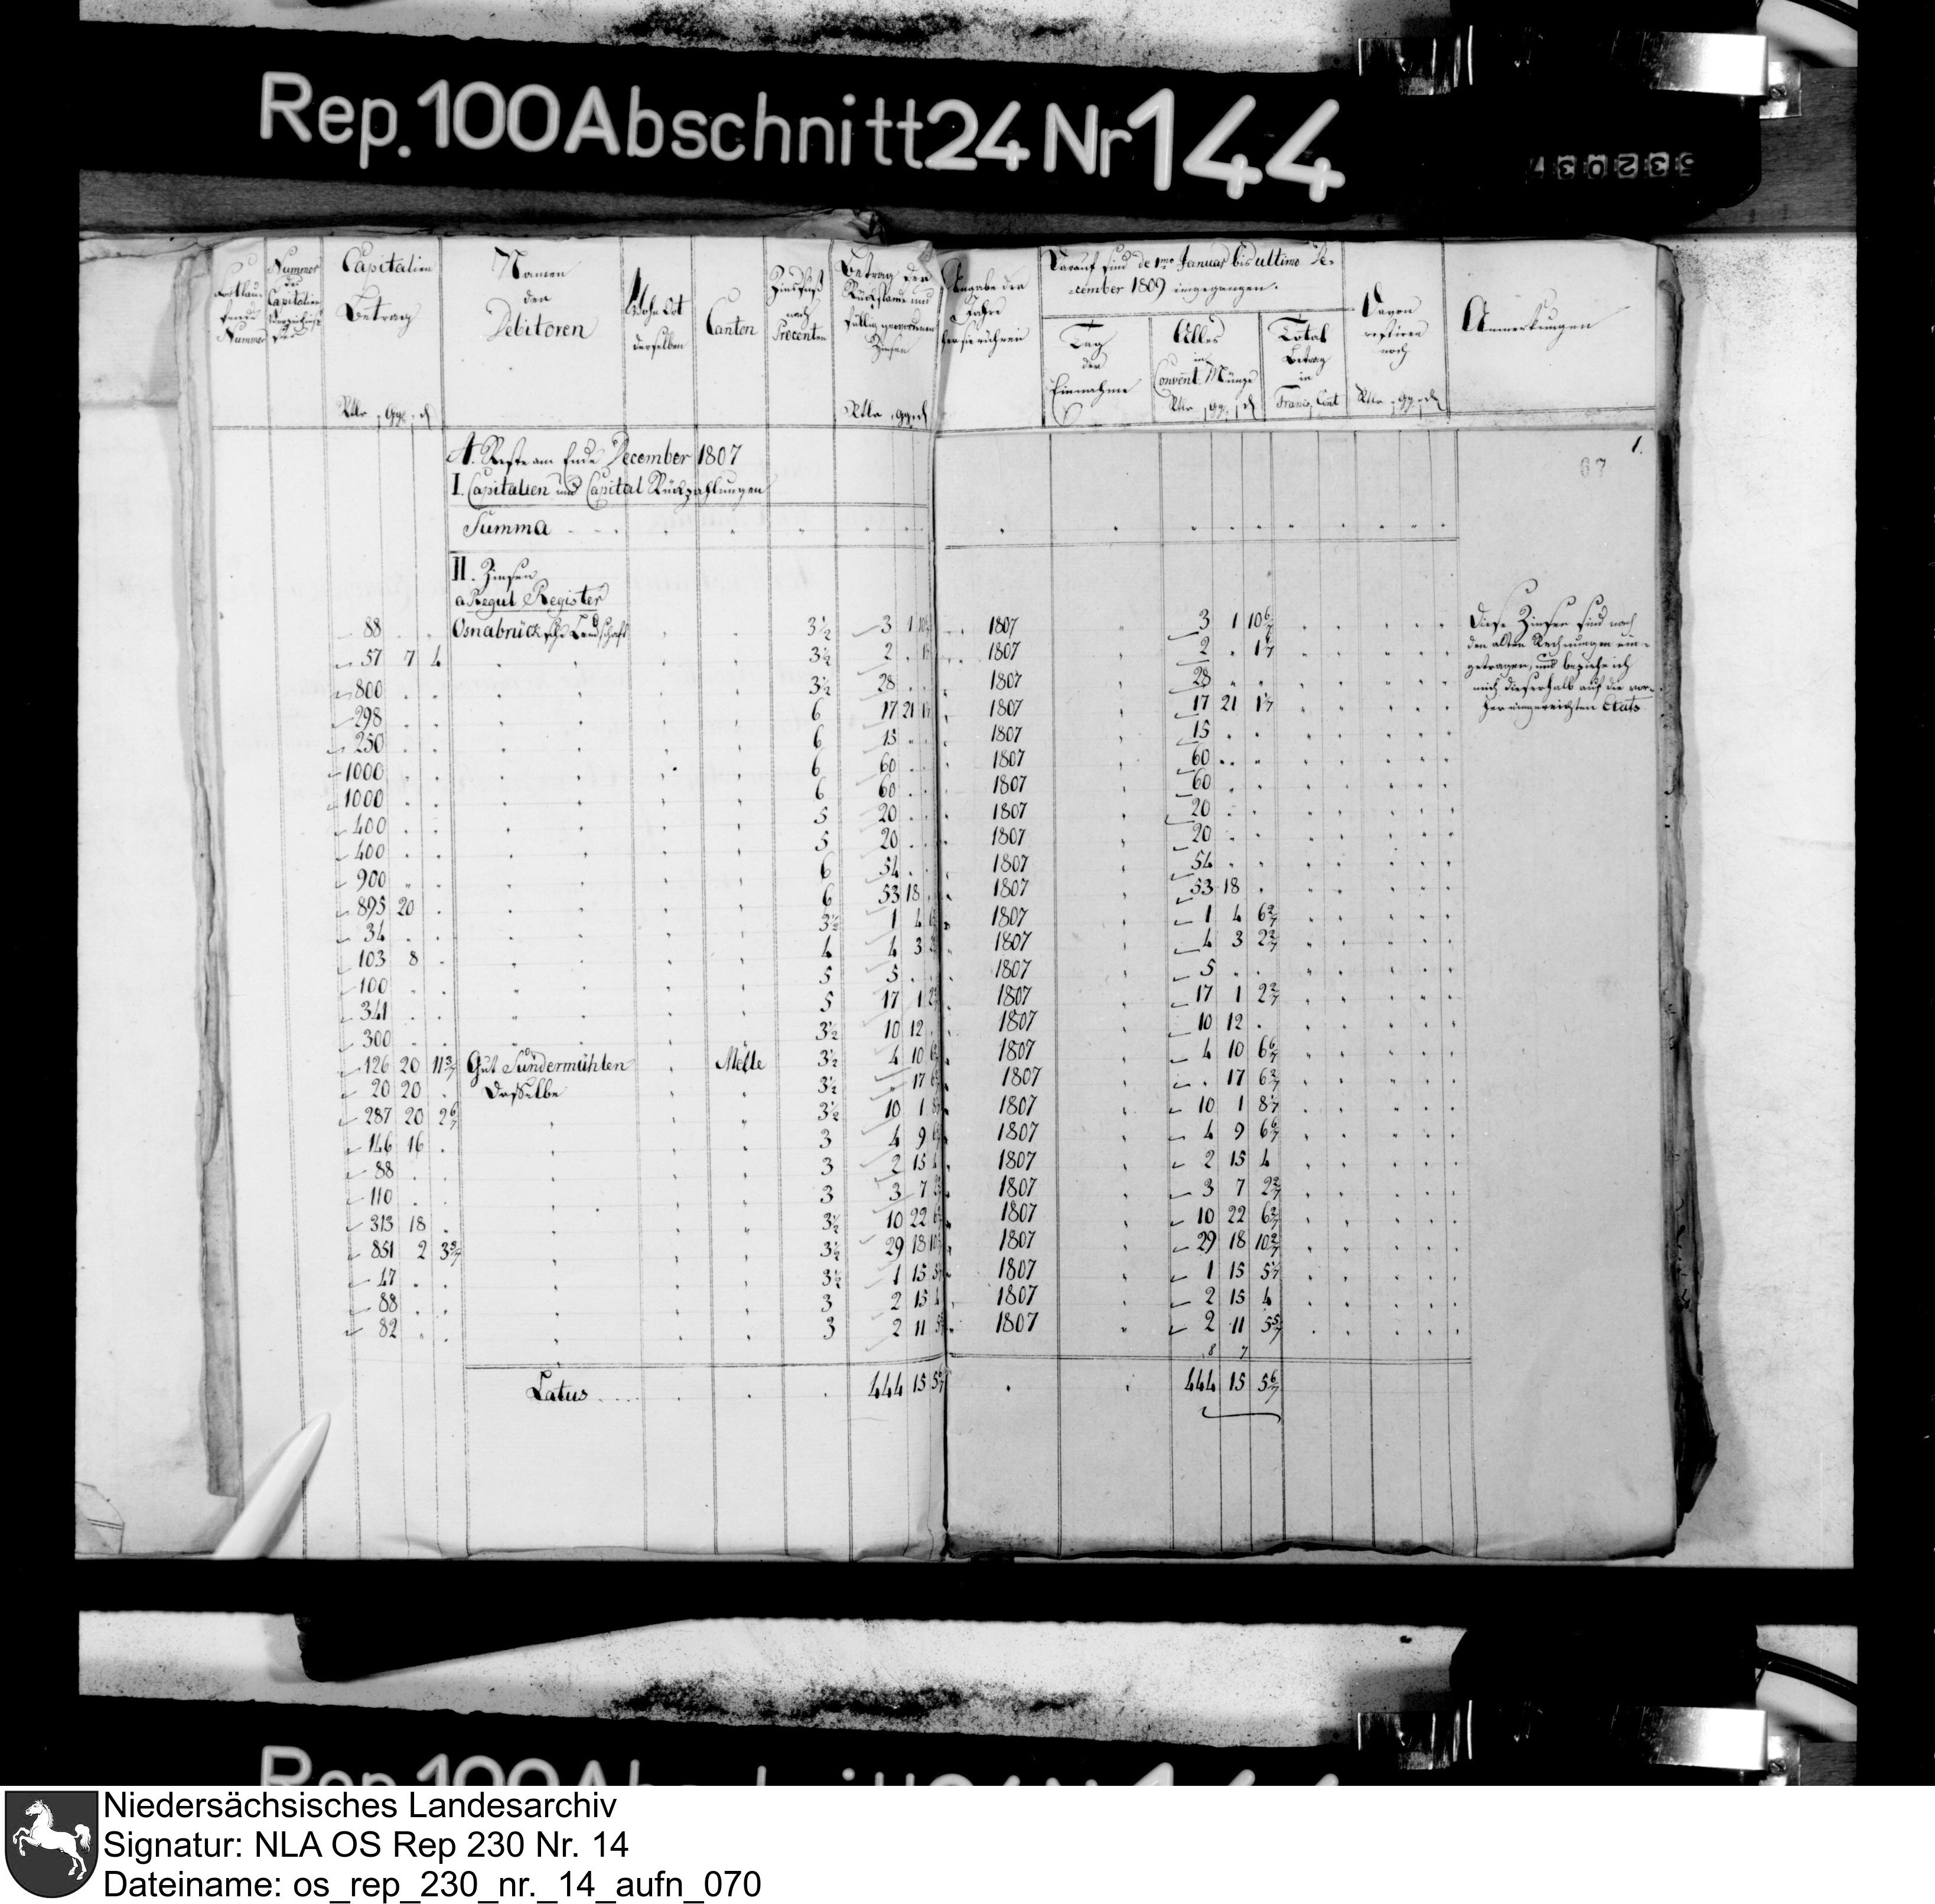 Rep. 100 Abschnitt 24 Nr 144
Fortlau-
fende
Nummer
Nummer
des
Capitalien
Verzeichnisses
Capitalien
Betrag
Rtlr ggr d
Namen
der
Debitoren
Wohn Ort
derselben
Canton
Zinsfuß
nach
Procenten
Betrag der
Rückstande und
fällig gewordenen
Zinsen
Rtlr ggr d
Angabe der
Jahre
hersie rühren
Darauf sind de 1mo Januar bis ultimo De-
cember 1809 eingegangen.
Tag
der
Einnahme
Alles
in
Convent. Münze
Rtlr ggr d
Total
Betrag
in
Francs Cent
Davon
restiren
noch
Rtlr ggr d
Anmerkungen
1.
67
A. Reste am Ende December 1807
I. Capitalien und Capital Rückzahlungen
Summa
II. Zinsen
a Regul Register
88 Osnabrücksche Landschaft 3½ 3 1 10 1807 3 1 10 6/7
57 7 4 3½ 2 1807 2 1 1/7
800 3½ 28 1807 28
298 6 17 21 1 1807 17 21 1 1/7
250 6 15 1807 15
1000 6 60 1807 60
1000 6 60 1807 60
400 5 20 1807 20
400 5 20 1807 20
900 6 54 1807 54
895 20 6 53 18 1807 53 18
34 3½ 1 4 1807 1 4 6 2/7
103 8 4 4 3 1807 4 3 2 2/7
100 5 5 1807 5
341 5 17 1 2 1807 17 1 2 2/7
300 3½ 10 12 1807 10 12
126 20 11 3/7 Gut Sündermühlen Melle 3½ 4 10 6 1807 4 10 6 6/7
20 20 Dasselbe 3½ 17 6 1807 17 6 3/7
287 20 2 6/7 3½ 10 1 8 1807 10 1 8 1/7
146 16 3 4 9 6 1807 4 9 6 6/7
88 3 2 15 4 1807 2 15 4
110 3 3 7 1807 3 7 2 2/7
313 18 3½ 10 22 6 1807 10 22 6 3/7
851 2 3 5/7 3½ 29 18 10 1807 29 18 10 2/7
47 3½ 1 15 5 1807 1 15 5 1/7
88 3 2 15 4 1807 2 15 4
82 3 2 11 5 1807 2 11 5 5/7
8 7
Latus 444 15 5 6/7 444 15 5 6/7
Diese Zinsen sind nach
den alten Rechnungen ein-
getragen, und beziehe ich
mich dieserhalb auf die vor-
her eingereichten Etats
Niedersächsisches Landesarchiv
Signatur: NLA OS Rep 230 Nr. 14
Dateiname: os_rep_230_nr._14_aufn_070